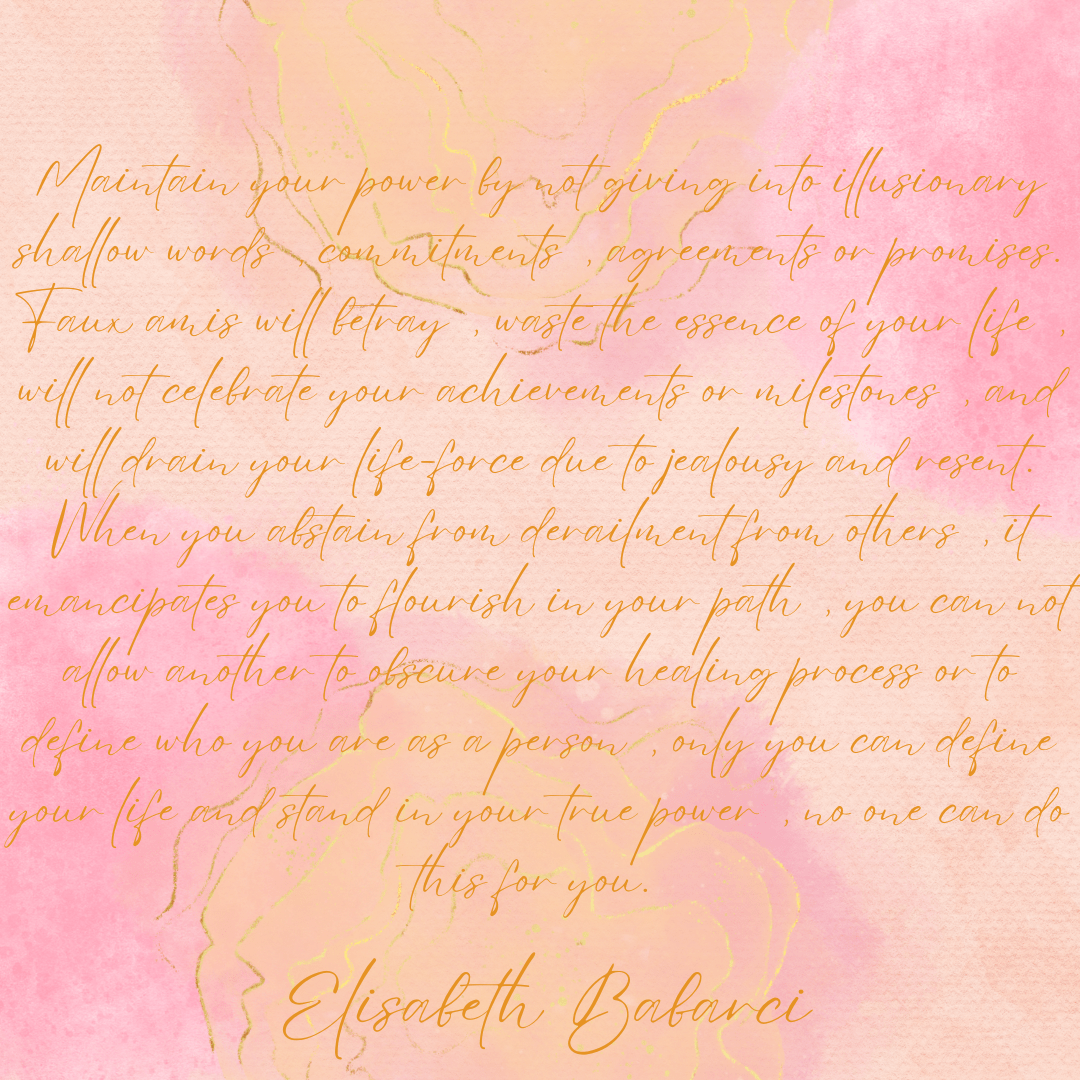 Maintain your power by not giving into illusionary
shallow words , commitments , agreements or promises.
Faux amis will betray , waste the essence of your life ,
will not celebrate your achievements or milestones , and
will drain your life-force due to jealousy and resent.
When you abstain from derailment from others , it
emancipates you to flourish in your path , you can not
allow another to obscure your healing process or to
define who you are as a person , only you can define
your life and stand in your true power , no one can do
this for you.
Elisabeth Babarci